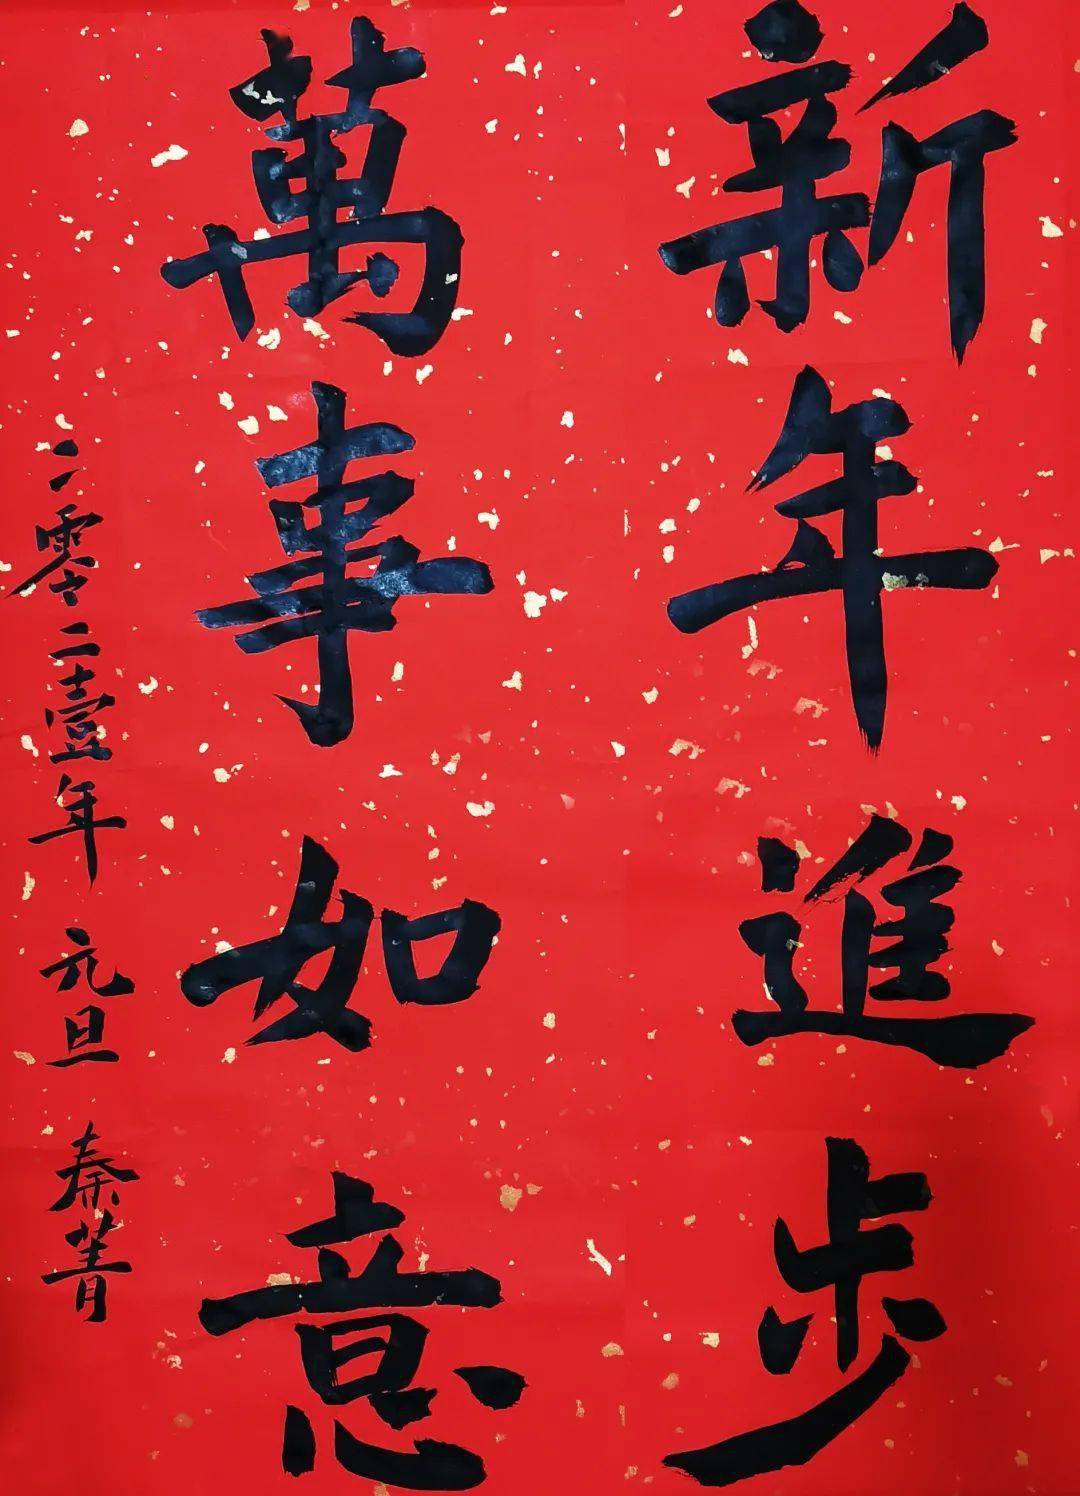 新年進步
萬事如意
二零二壹年 元旦 秦菁